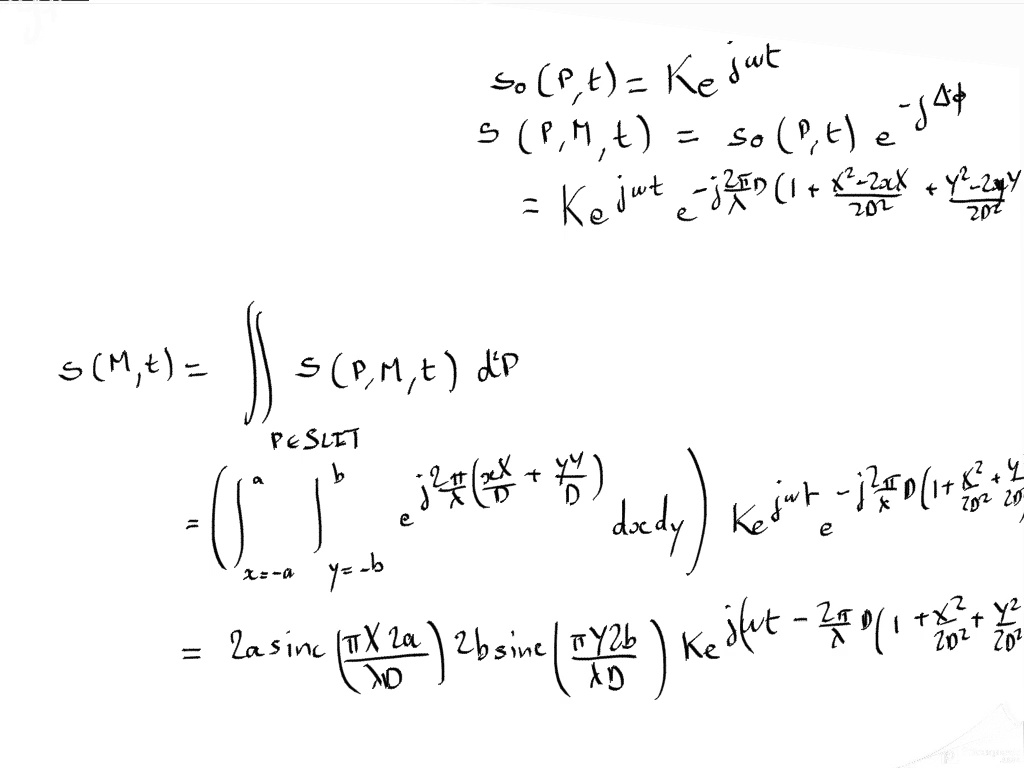 s₀(P,t) = Ke^{jωt}
s(P,M,t) = s₀(P,t) e^{-jΔϕ}
= Ke^{jωt} e^{-j\frac{2π}{λ}D(1 + \frac{X²-2xX}{2D²} + \frac{Y²-2yY}{2D²}}
s(M,t) = ∬_{P∈SLIT} s(P,M,t) d²P
= (∫_{x=-a}^{a} ∫_{y=-b}^{b} e^{j\frac{2π}{λ}(\frac{xX}{D} + \frac{yY}{D})} dxdy) Ke^{jωt} e^{-j\frac{2π}{λ}D(1+\frac{X²}{2D²}+\frac{Y}{2D}}
= 2a sinc(\frac{πX2a}{λD}) 2b sinc(\frac{πY2b}{λD}) Ke^{j(ωt - \frac{2π}{λ}D(1+\frac{X²}{2D²}+\frac{Y²}{2D²}}